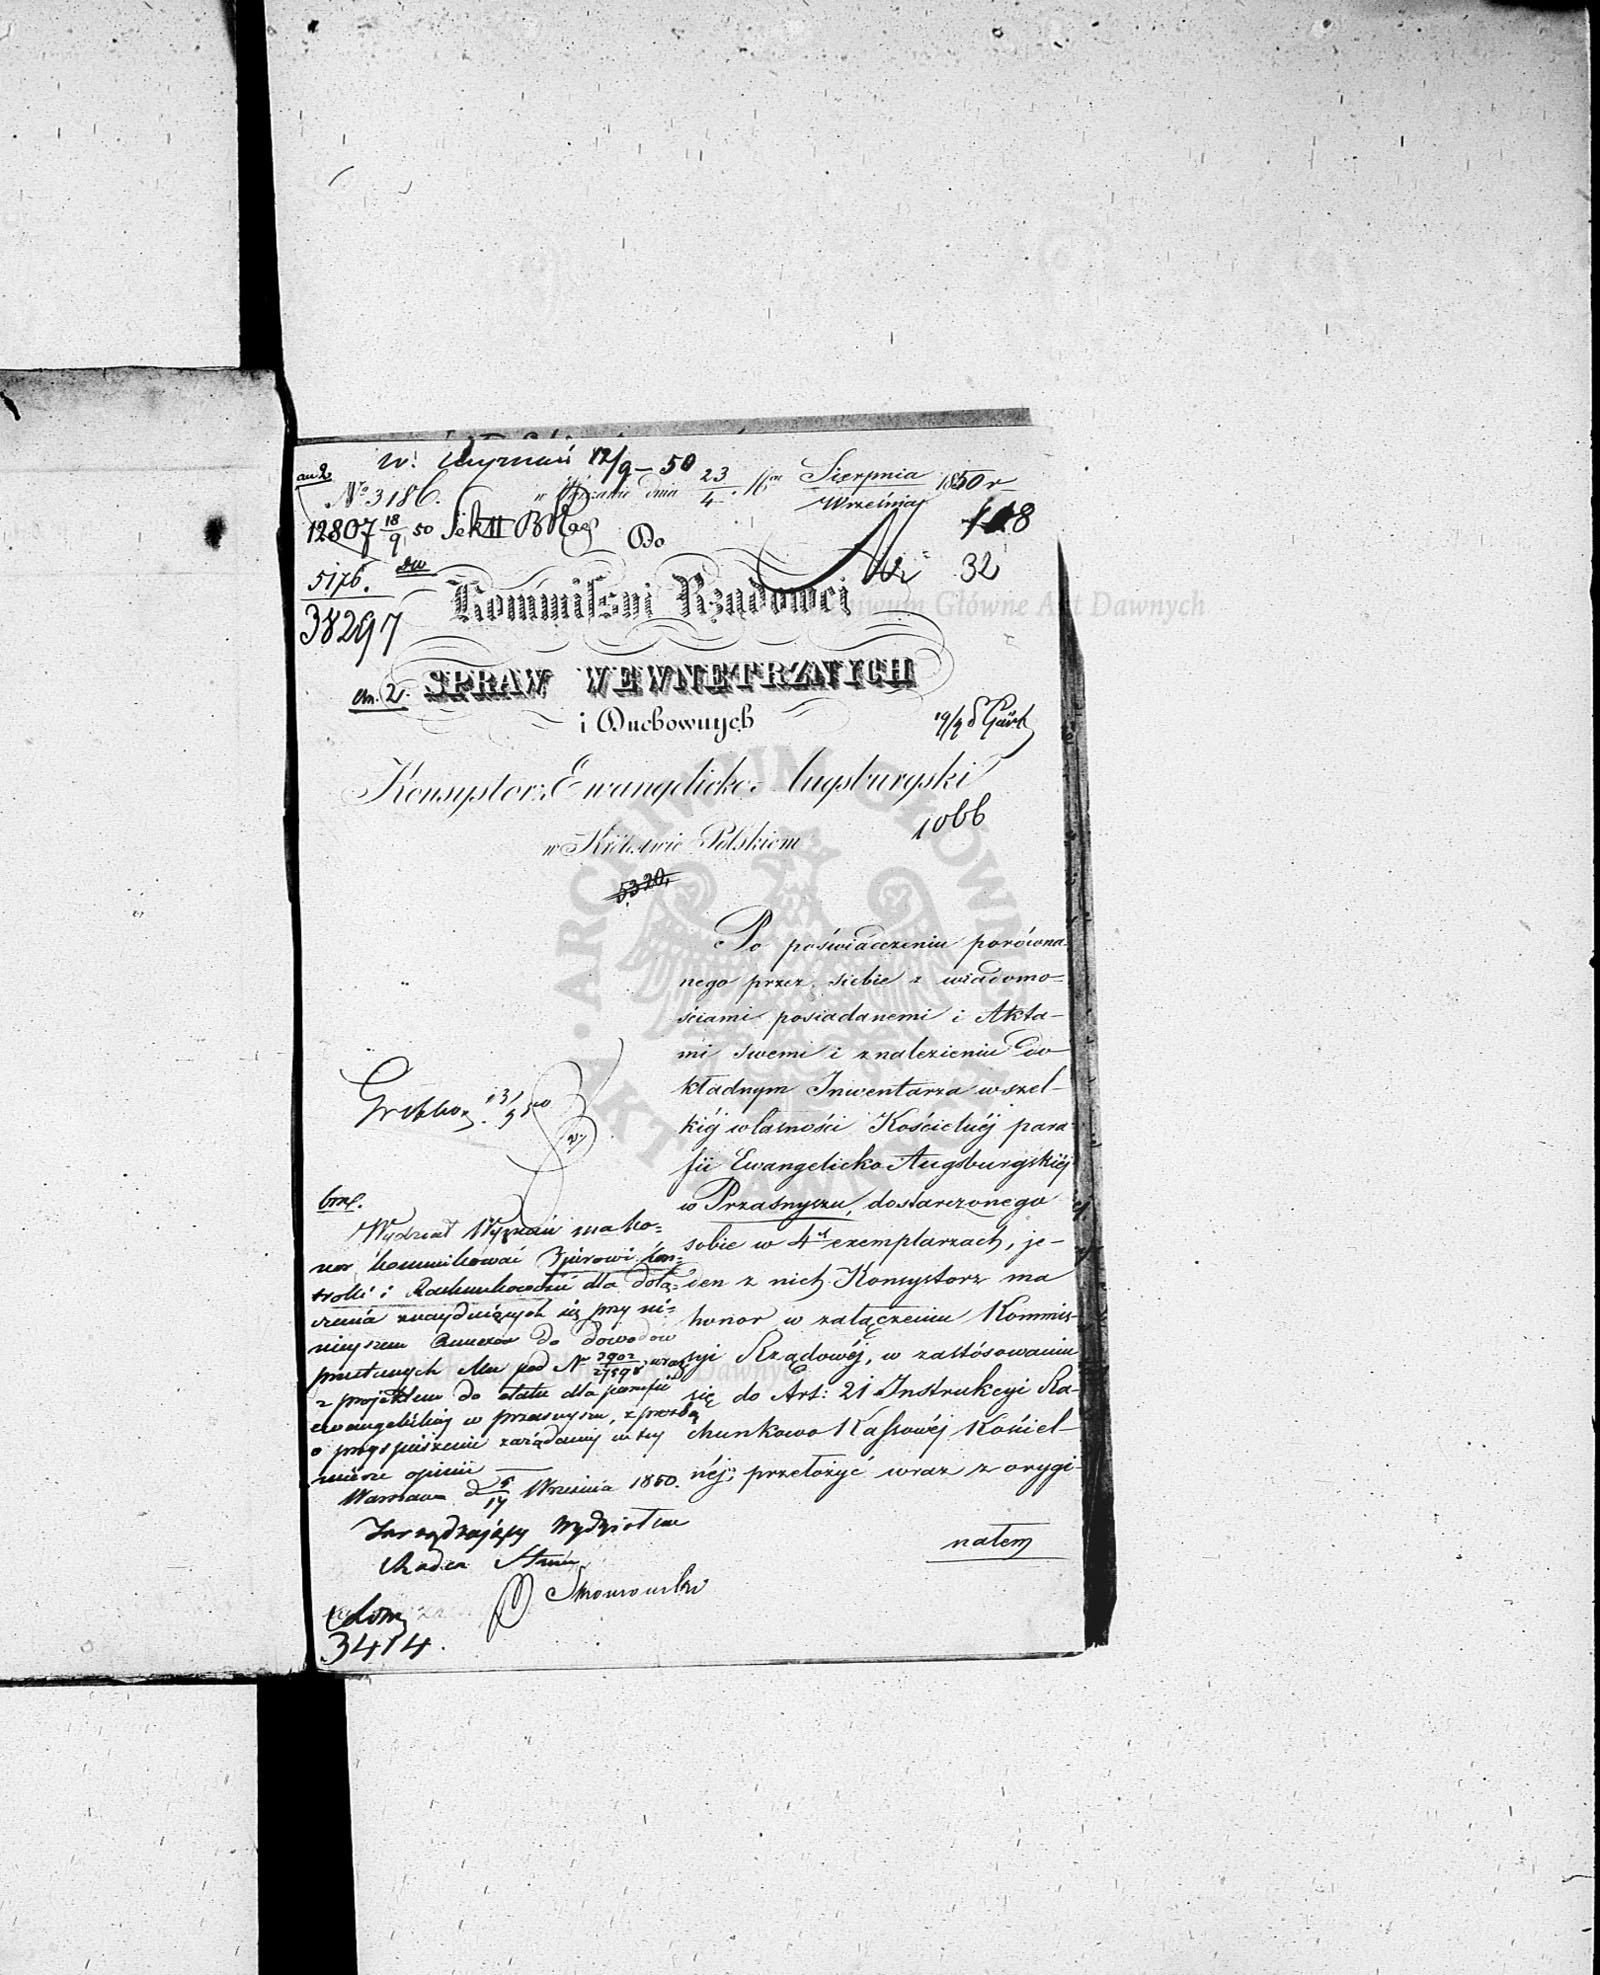 W. Wyznań 12/9 – 50
an 2
No 3186.
w Warszawie dnia 23/4 Sierpnia/Września 1850 r
12807 18/9 50 Sek II
118
Do
Nr 32
5176.
38297
Kommissyi Rządowej
an. 2.
SPRAW WEWNĘTRZNYCH
i Duchownych
19/9
Konsystorz Ewangelicko-Augsburgski
1066
w Królestwie Polskiem
5320,
Po poświadczeniu porówna-
nego przez siebie z wiadomo-
ściami posiadanemi i Akta-
mi swemi i znalezieniu do-
kładnym Inwentarza wszel-
kiéj własności Kościelnéj para-
fii Ewangelicko Augsburgskiéj
w Przasnyszu, dostarczonego
sobie w 4ch exemplarzach, je-
den z nich Konsystorz ma
honor w załączeniu Kommis-
syi Rządowéj, w zastósowaniu
się do Art: 21 Instrukcyi Ra-
chunkowo Kassowéj Kościel-
néj, przełożyć wraz z orygi-
nałem
brm.
Wydział Wyznań ma ho-
nor kommunikować Biórowi Kon-
trolli i Rachunkowości dla dołą-
czenia znajdujących się przy ni-
niejszem Annexów do dowodów
przesłanych Mu pod No 2902/27598 wraz
z projektem do etatu dla parafii
ewangelickiej w Przasnyszu, z prośbą
o przyspieszenie zarządanej w tej
mierze opinii
Warszawa d 5/17 Września 1850.
Zarządzający Wydziałem
Radca Stanu
3414.
Archiwum Główne Akt Dawnych
ARCHIWUM GŁÓWNE AKT DAWNYCH
Archiwum Główne Akt Dawnych